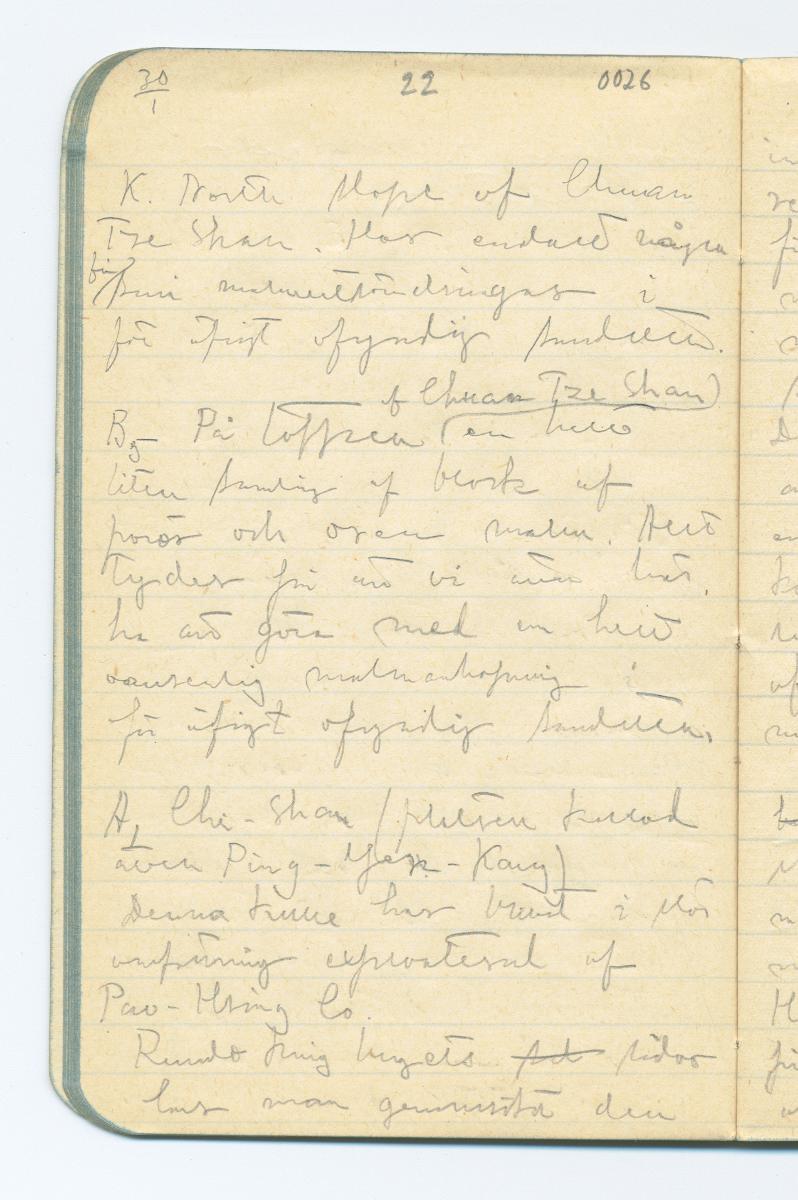 30/1 22 0026
K. North slope of Chuan
Tze Shan. Har endast några
små malmutsöndringar i
för öfrigt ofyndig sandsten.
of Chuan Tze Shan)
B5 På toppen (en helt
liten samling af block af
porös och oren malm. Allt
tyder på att vi även här
ha att göra med en helt
oansenlig malmanhopning i
för öfrigt ofyndig sandsten.
A1 Che-Shan (platsen kallad
även Ping-Yen-Kang)
Denna kulle har blivit i stor
omfattning exploaterad af
Pao-Hsing Co.
Rundt kring bergets sidor
har man genomsökt den